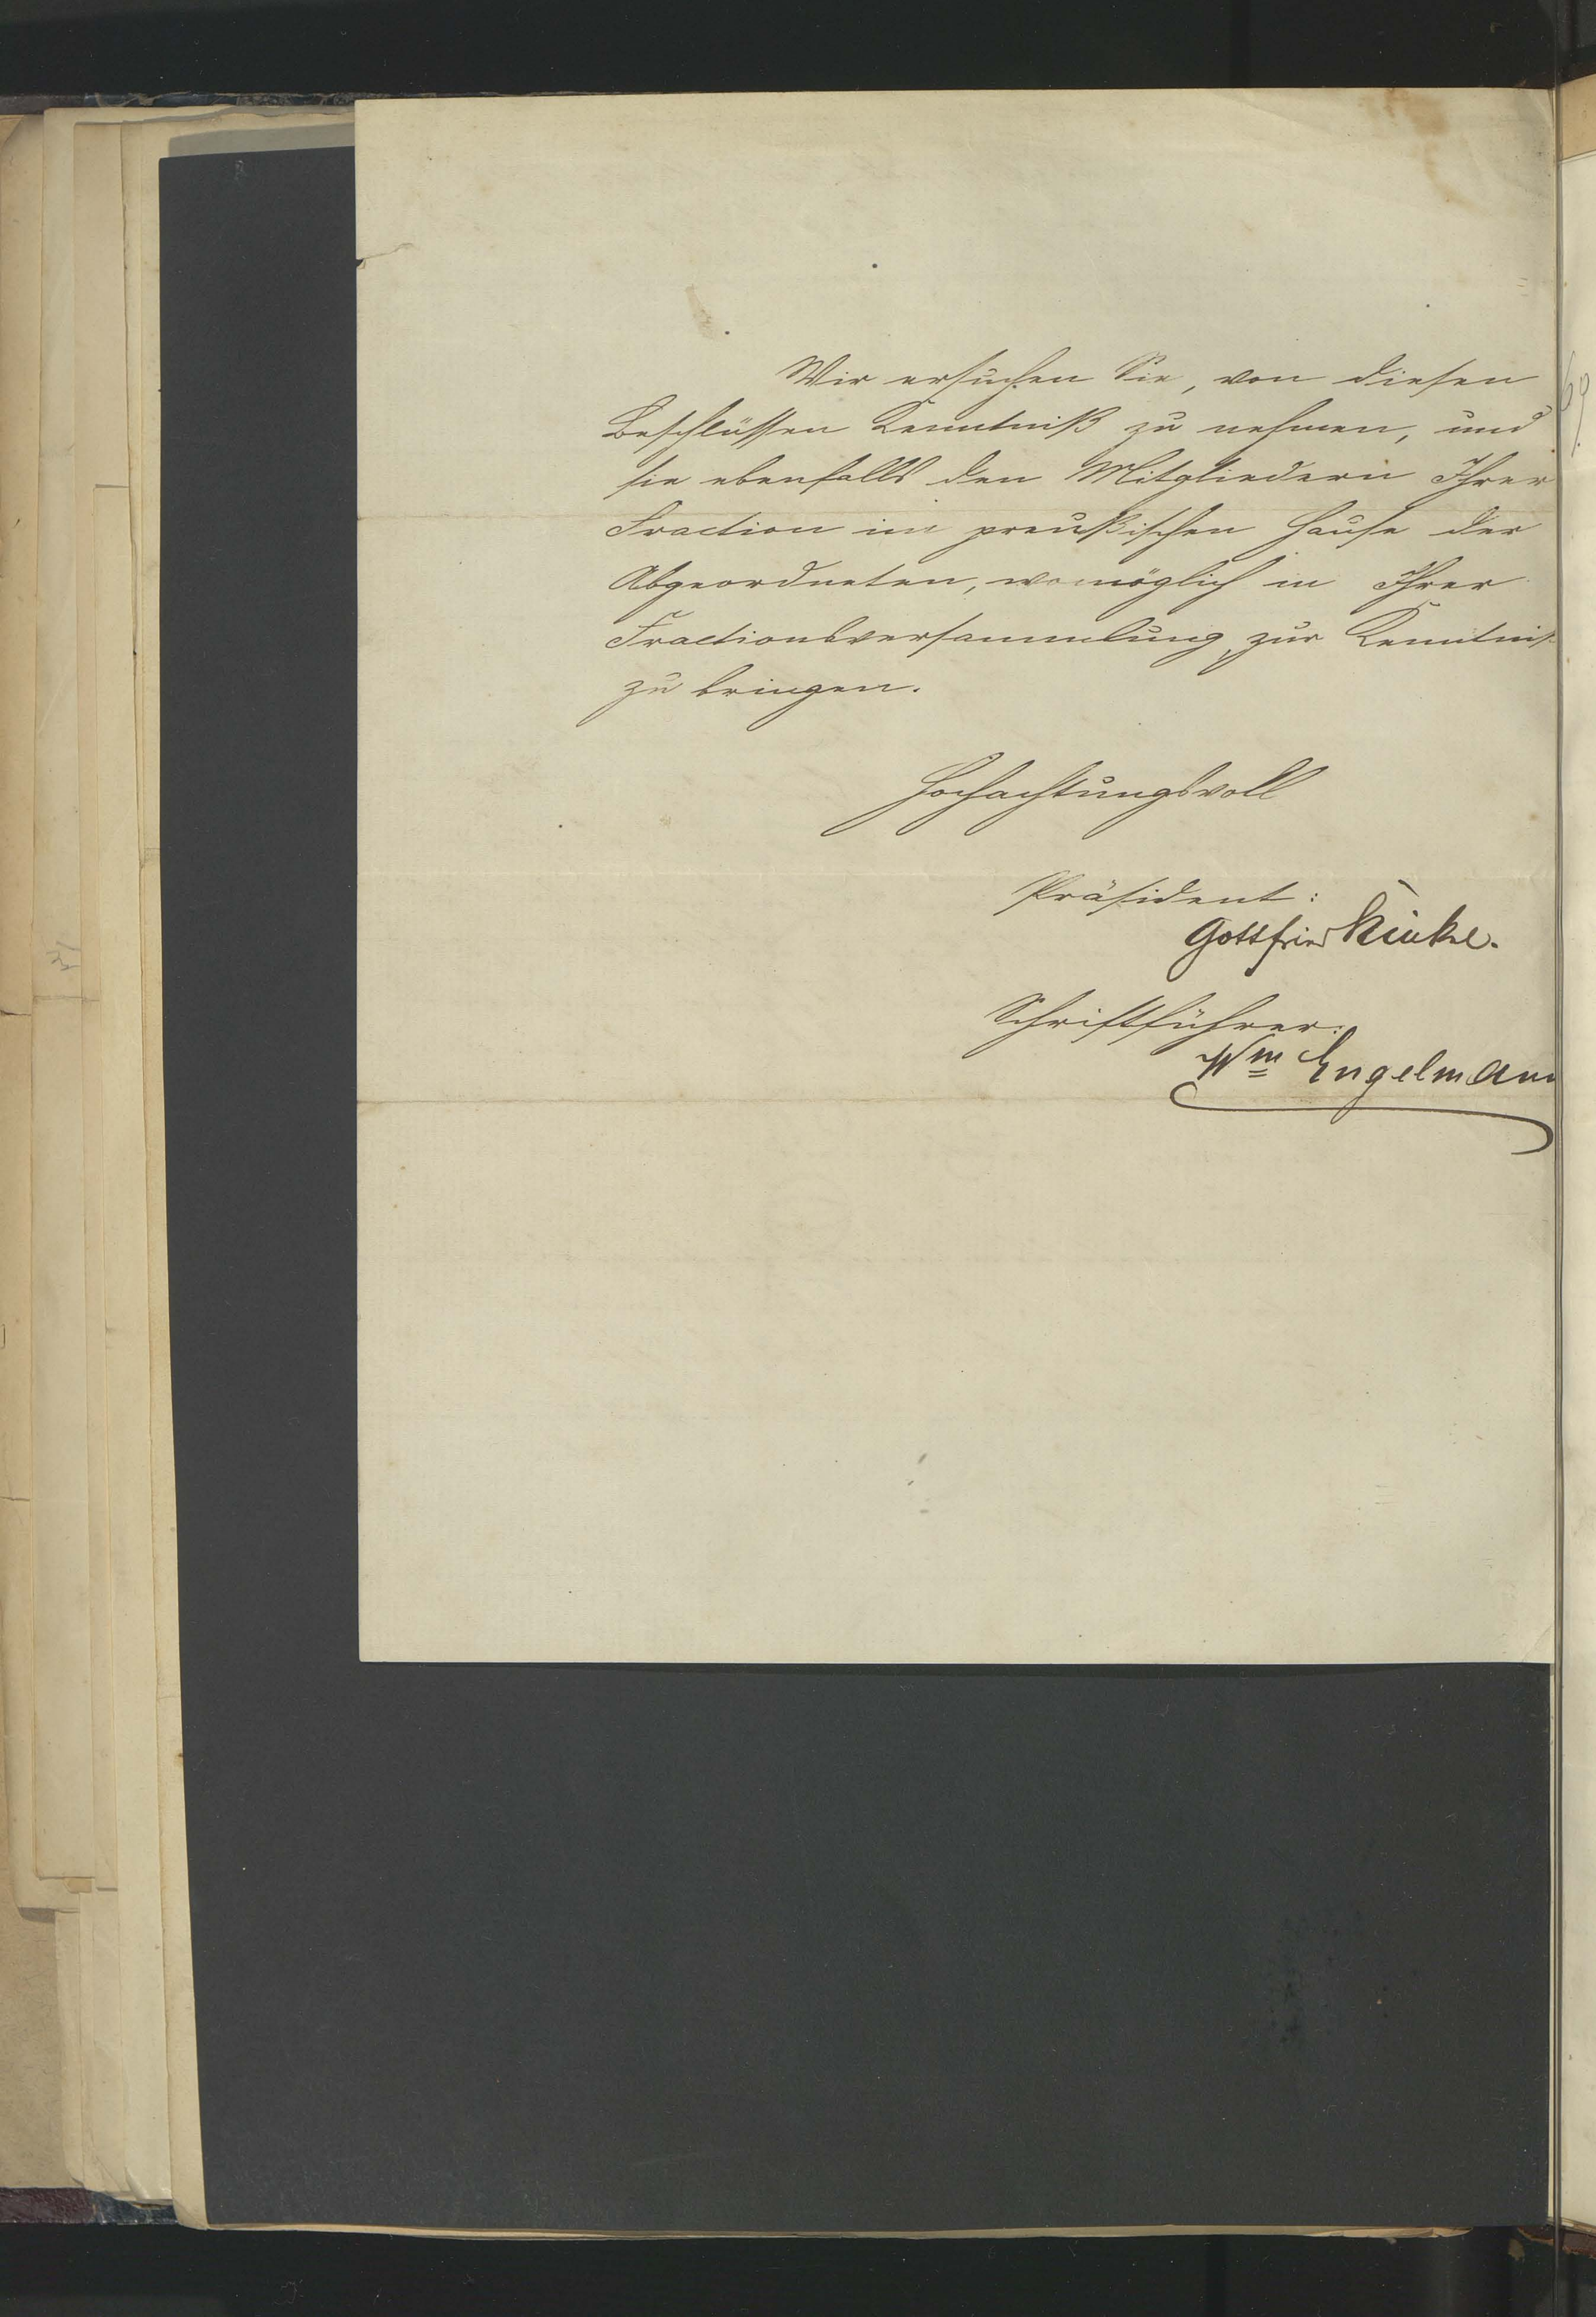 Wir ersuchen Sie, von diesen
Beschlüssen Kenntniß zu nehmen, und
sie ebenfalls den Mitgliedern Ihrer
Fraction im preußischen Hause der
Abgeordneten, womöglich in Ihrer
Fractionsversammlung, zur Kenntniß
zu bringen.
Hochachtungsvoll
Präsident:
Gottfried Kinkel.
Schriftführer:
Wm Engelmann